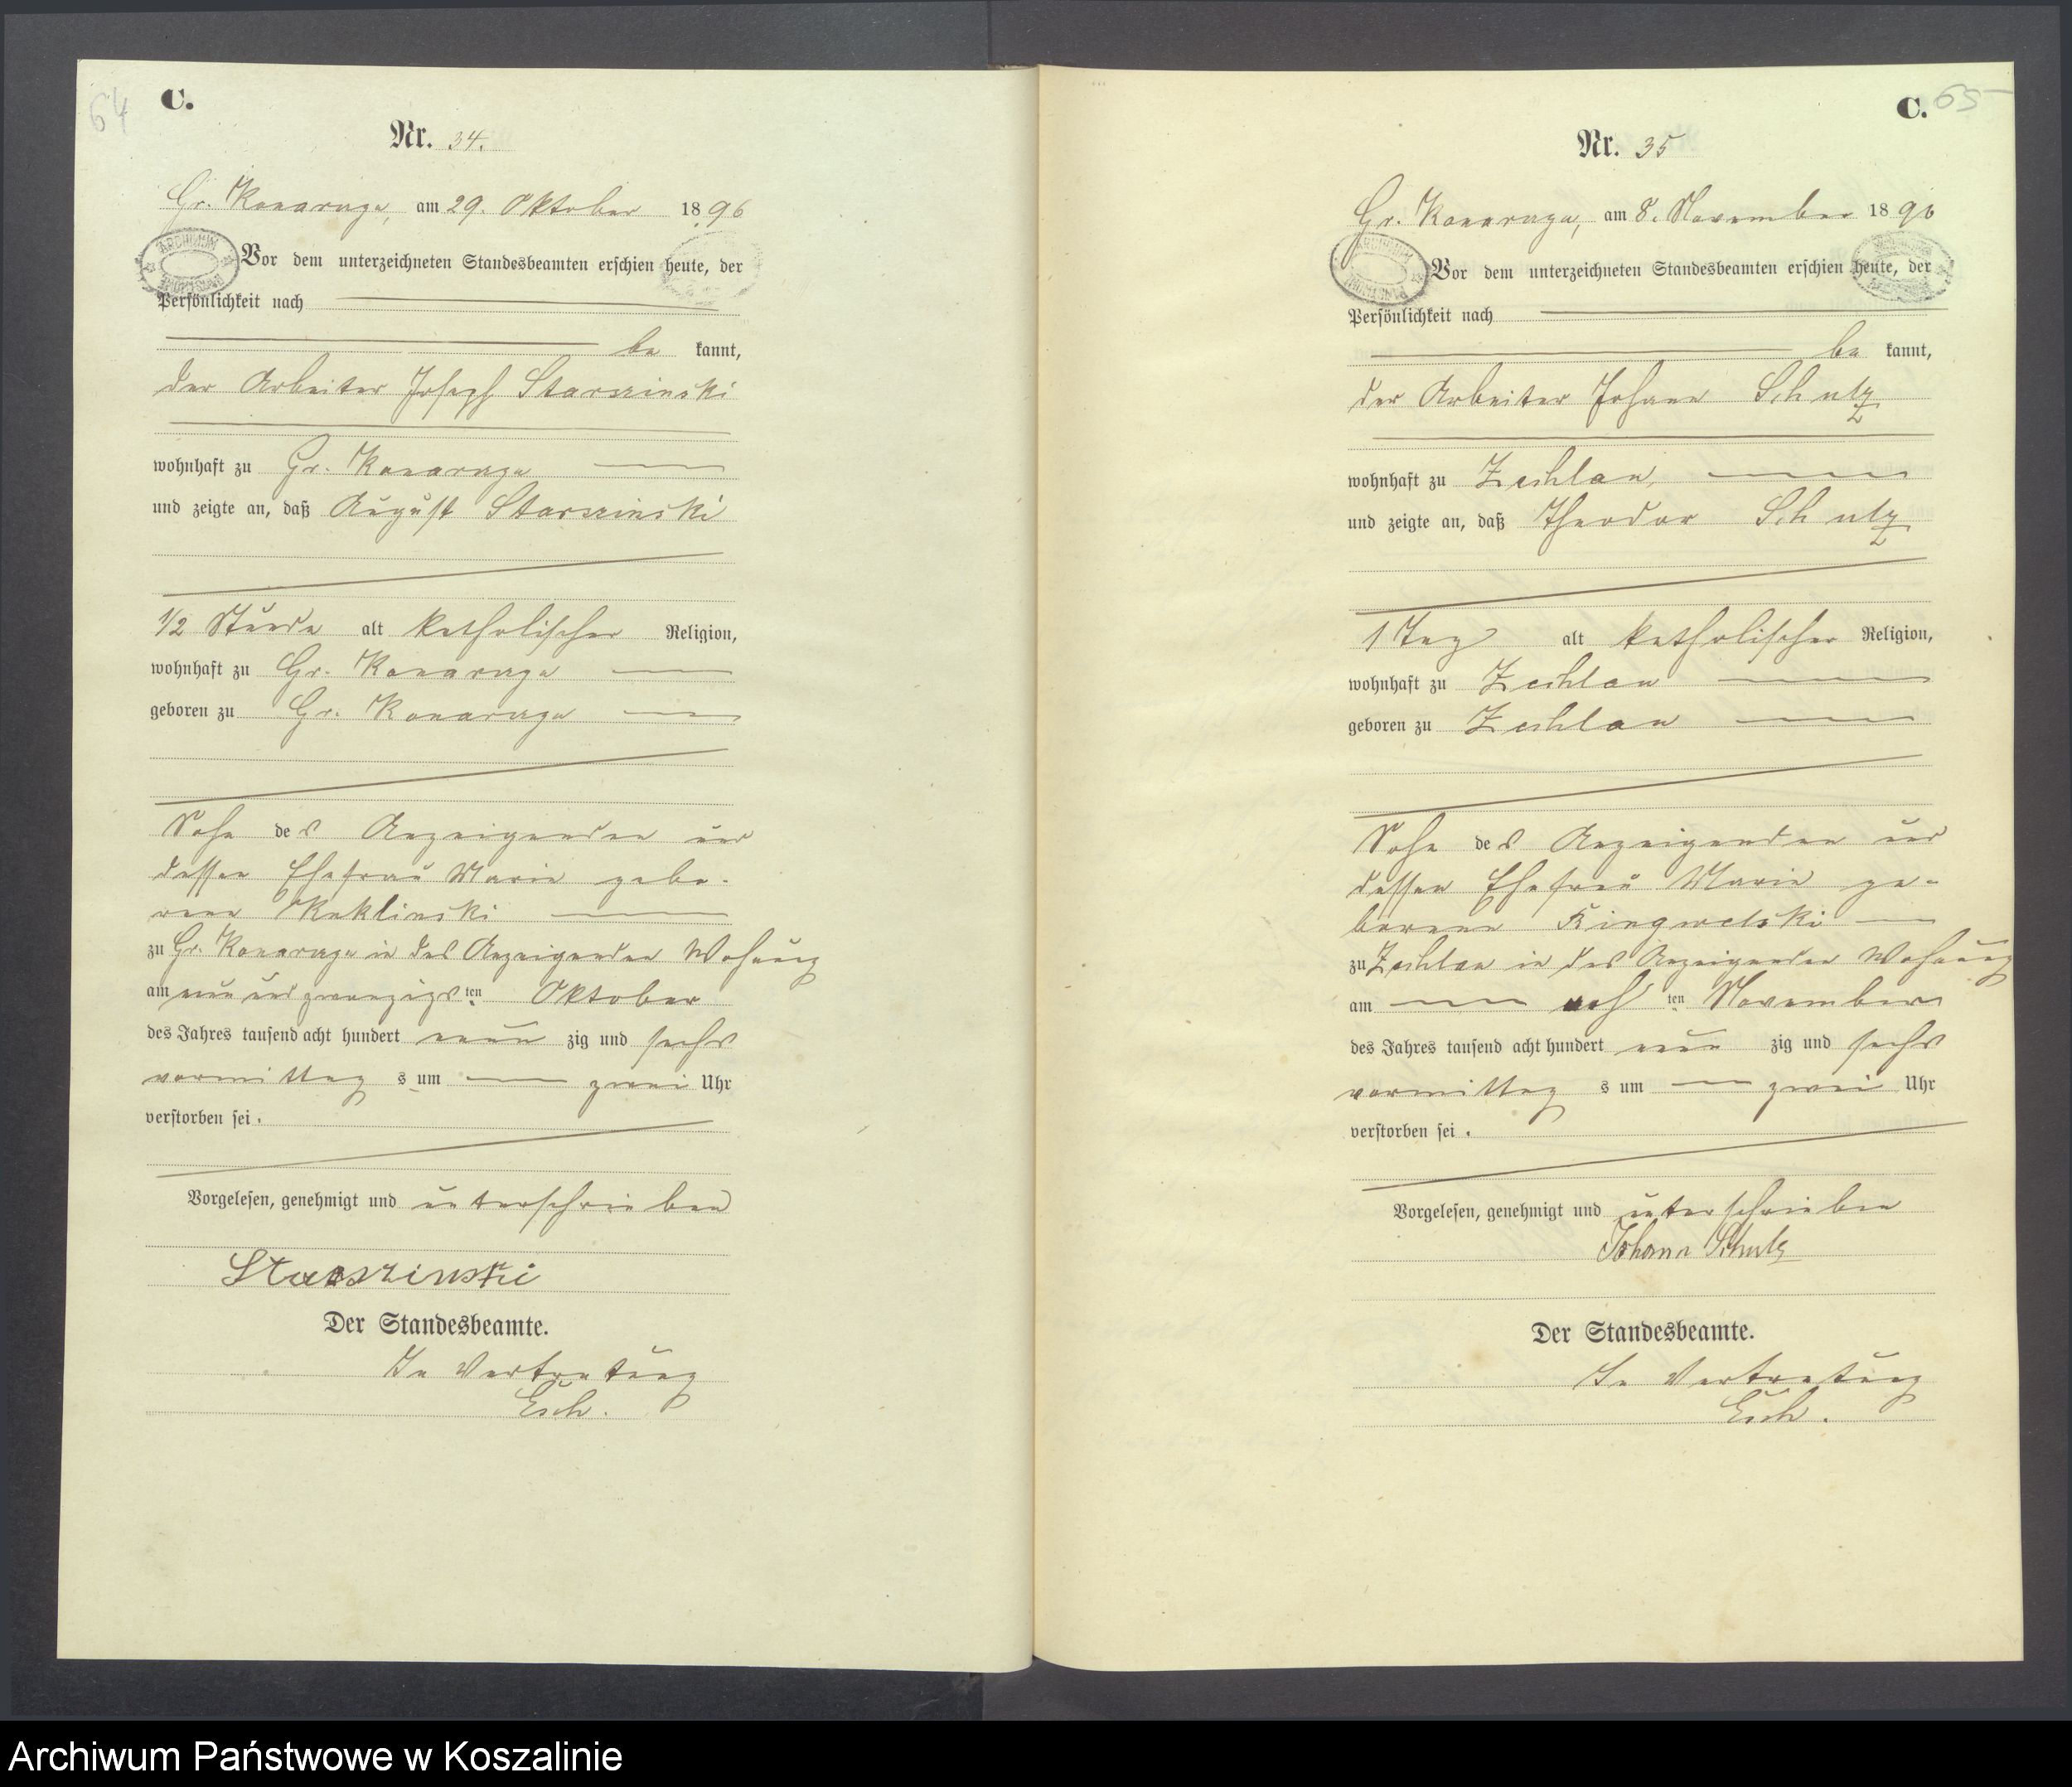 64
C.
Nr. 34.
Gr. Konarzyn, am 29. Oktober 1896
ARCHIWUM
Vor dem unterzeichneten Standesbeamten erschien heute, der
Persönlichkeit nach
be kannt,
der Arbeiter Joseph Starszinski
wohnhaft zu Gr. Konarzyn
und zeigte an, daß August Starszinski
1/2 Stunde alt katholischer Religion,
wohnhaft zu Gr. Konarzyn
geboren zu Gr. Konarzyn
Sohn des Anzeigenden und
dessen Ehefrau Marie gebo-
rene
zu Gr. Konarzyn in des Anzeigenden Wohnung
am neun und zwanzigsten Oktober
des Jahres tausend acht hundert neun zig und sechs
vormittag s um zwei Uhr
verstorben sei.
Vorgelesen, genehmigt und unterschrieben
Starszinski
Der Standesbeamte.
In Vertretung
Esch.
65
C.
Nr. 35
Gr. Konarzyn, am 8. November 1896
ARCHIWUM
Vor dem unterzeichneten Standesbeamten erschien heute, der
Persönlichkeit nach
be kannt,
der Arbeiter Johann Schulz
wohnhaft zu Zechlau,
und zeigte an, daß Theodor Schulz
1 Tag alt katholischer Religion,
wohnhaft zu Zechlau
geboren zu Zechlau
Sohn des Anzeigenden und
dessen Ehefrau Marie ge-
borene
zu Zechlau in des Anzeigenden Wohnung
am ten November
des Jahres tausend acht hundert neun zig und sechs
vormittag s um zwei Uhr
verstorben sei.
Vorgelesen, genehmigt und unterschrieben
Johann Schulz
Der Standesbeamte.
In Vertretung
Esch.
Archiwum Państwowe w Koszalinie